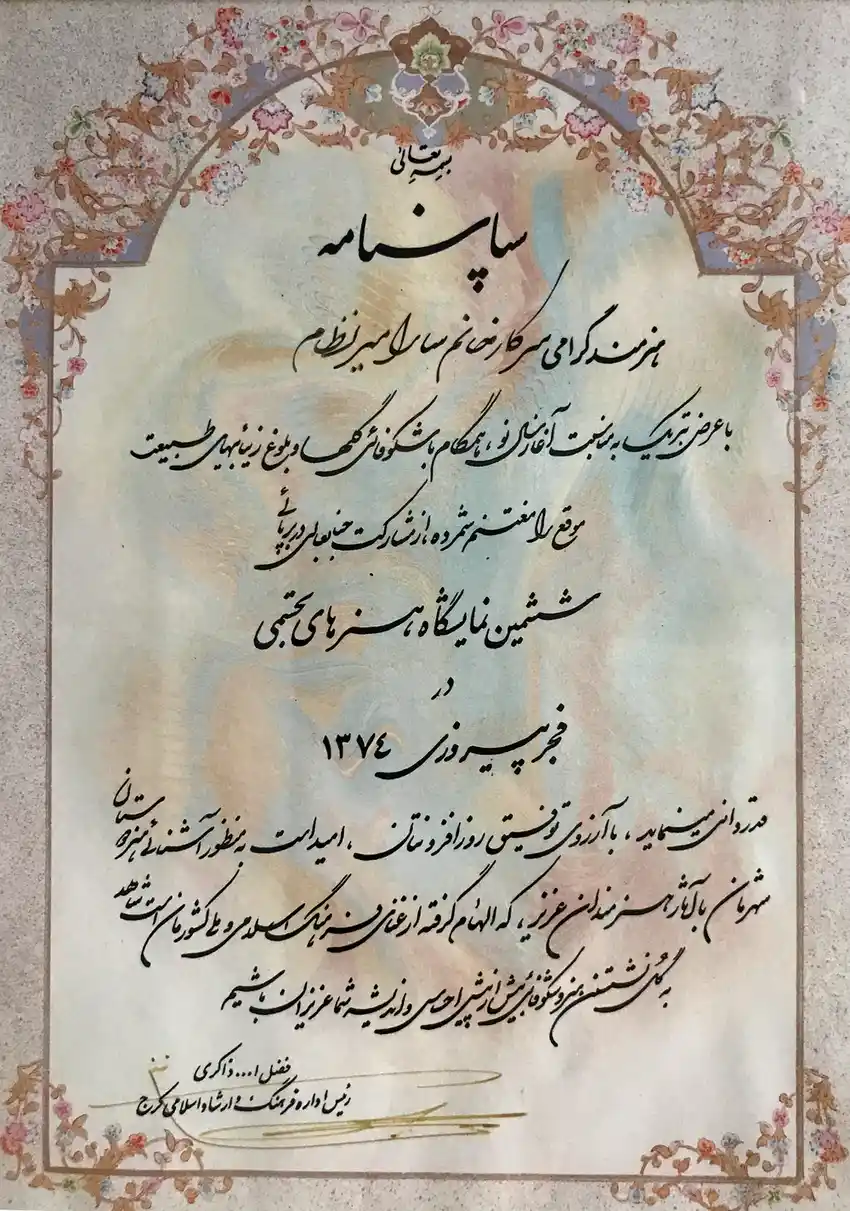 بسمه تعالی
سپاسنامه
هنرمند گرامی سرکار خانم سارا میرنظام
با عرض تبریک به مناسبت آغاز سال نو، هامگام با شکوفائی گلها و بلوغ زیبائیهای طبیعت
موقع را مغتنم شمرده، از مشارکت جنابعالی در برپائی
ششمین نمایشگاه هنرهای تجسمی
در
فجر پیروزی ۱۳۷۴
قدردانی مینماید، با آرزوی توفیق روزافزونتان، امید است به منظور آشنائی هنردوستان
شهرمان با آثار هنرمندان عزیز، که الهام گرفته از غنای فرهنگ اسلامی و ملی کشورمان است شاهد
به گُل نشستن هنر و شکوفائی بیش از پیش احساس و اندیشه شما عزیزان باشیم
فضل ا... ذاکری
رئیس اداره فرهنگ و ارشاد اسلامی کرج